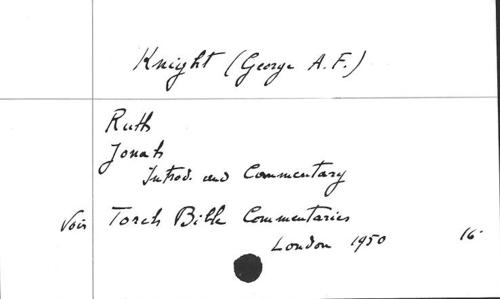 Knight (George A.F.)
Ruth
Jonah
Introd. and Commentary
Voir Torch Bible Commentaries
London 1950 16°